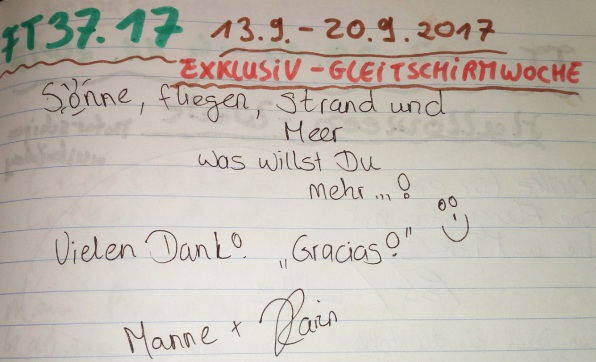 FT37.17 13.9. - 20.9.2017
EXKLUSIV - GLEITSCHIRMWOCHE
Sonne, fliegen, Strand und
Meer
was willst Du
mehr...!
Vielen Dank! „Gracias!"
Manne +